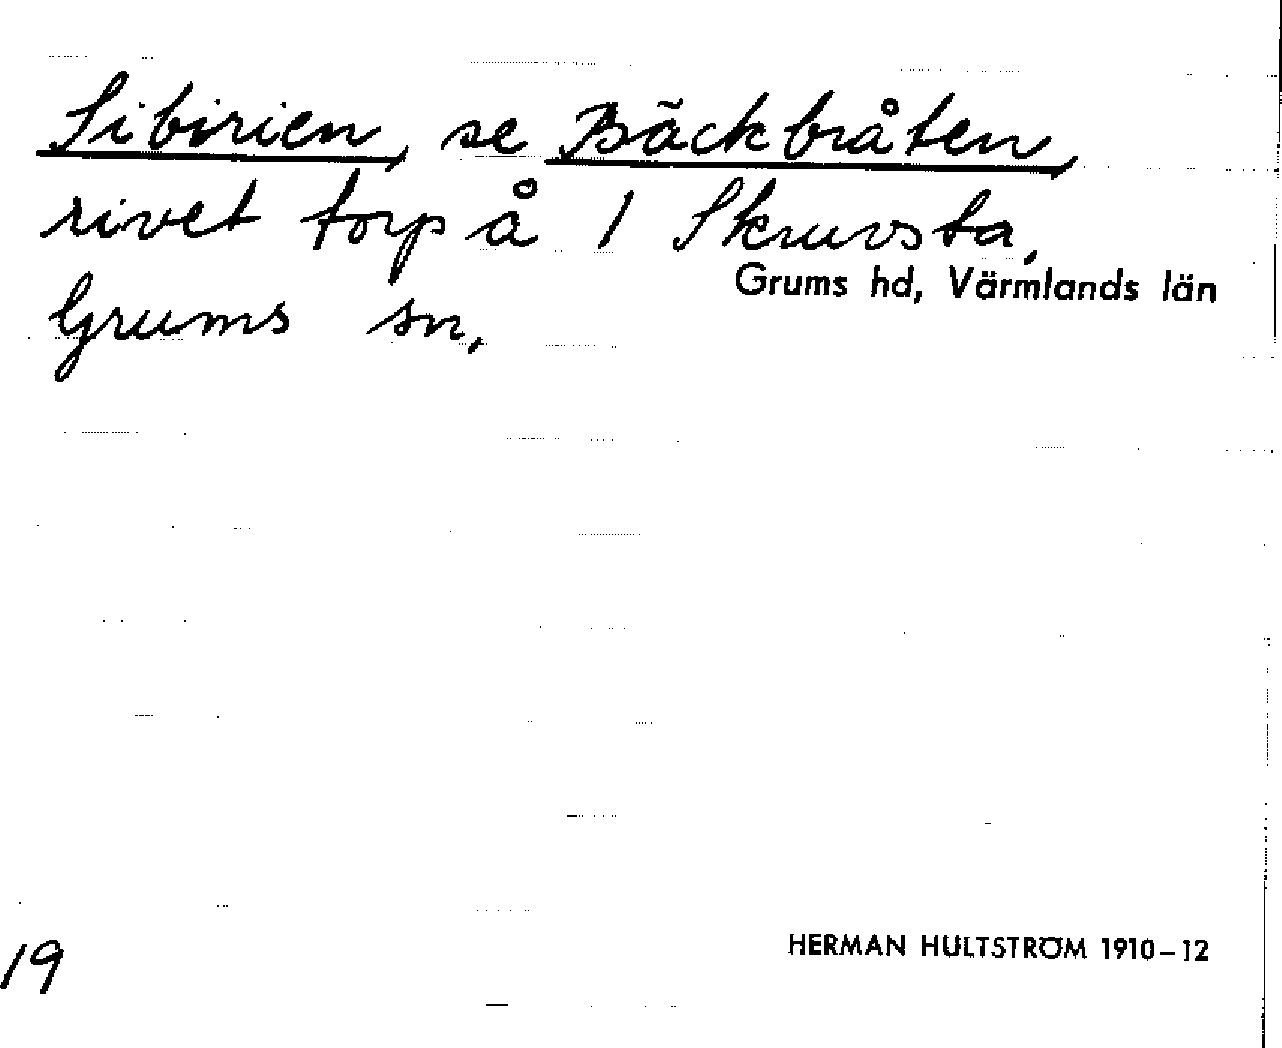 Sibirien, se Bäckbråten,
rivet torp å 1 Skruvsta,
Grums hd, Värmlands län
Grums sn,
19
HERMAN HULTSTRÖM 1910-12